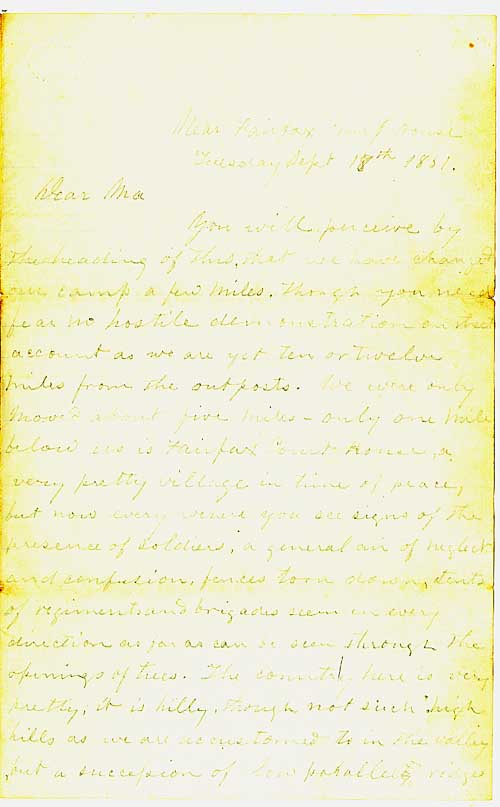 Near Fairfax Court House
Tuesday Sept 17th 1861.
Dear Ma
You will perceive by
the heading of this, that we have changed
our camp a few miles, though you need
fear no hostile demonstration on that
account as we are yet ten or twelve
miles from the outposts. We were only
moved about five miles - only one mile
below us is Fairfax Court House, a
very pretty village in time of peace,
but now every where you see signs of the
presence of soldiers, a general air of neglect
and confusion, fences torn down, tents
of regiments and brigades seen in every
direction as far as can be seen through the
openings of trees. The country here is very
pretty; it is hilly, though not such high
hills as we are accustomed to in the valley
but a succession of low parallel ridges